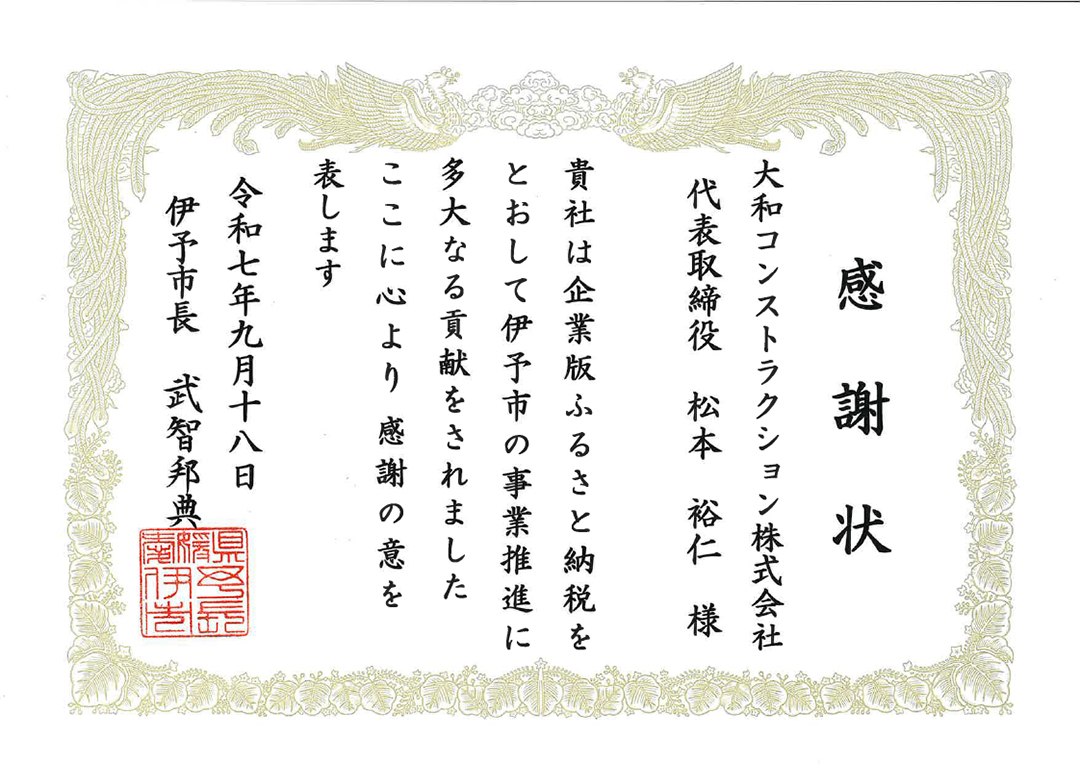 感謝状
大和コンストラクション株式会社
代表取締役 松本 裕仁 様
貴社は企業版ふるさと納税を
とおして伊予市の事業推進に
多大なる貢献をされました
ここに心より感謝の意を
表します
令和七年九月十八日
伊予市長 武智邦典